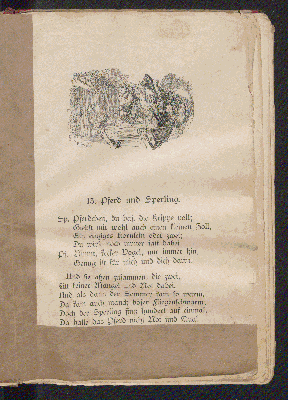 15. Pferd und Sperling.
Sp. Pferdchen, du hast die Krippe voll;
Giebst mir wohl auch einen kleinen Zoll,
Ein einziges Körnlein oder zwei;
Du wirst noch immer satt dabei.
Pf. Nimm, kecker Vogel, nur immer hin,
Genug ist für mich und dich darin.
Und sie aßen zusammen, die zwei,
Litt keiner Mangel und Not dabei.
Und als dann der Sommer kam so warm,
Da kam auch manch böser Fliegenschwarm;
Doch der Sperling fing hundert auf einmal,
Da hatte das Pferd nicht Not und Qual.